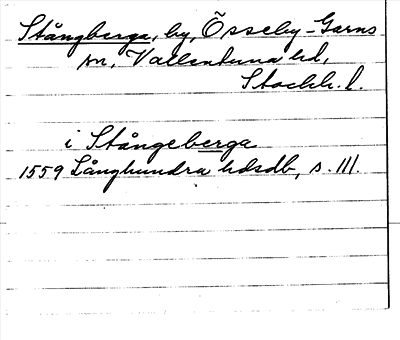 Stångberga, by, Össeby-Garns
sn, Vallentuna hd,
Stockh. l.
i Stångeberga
1559 Långhundra hdsdb, s. 111.